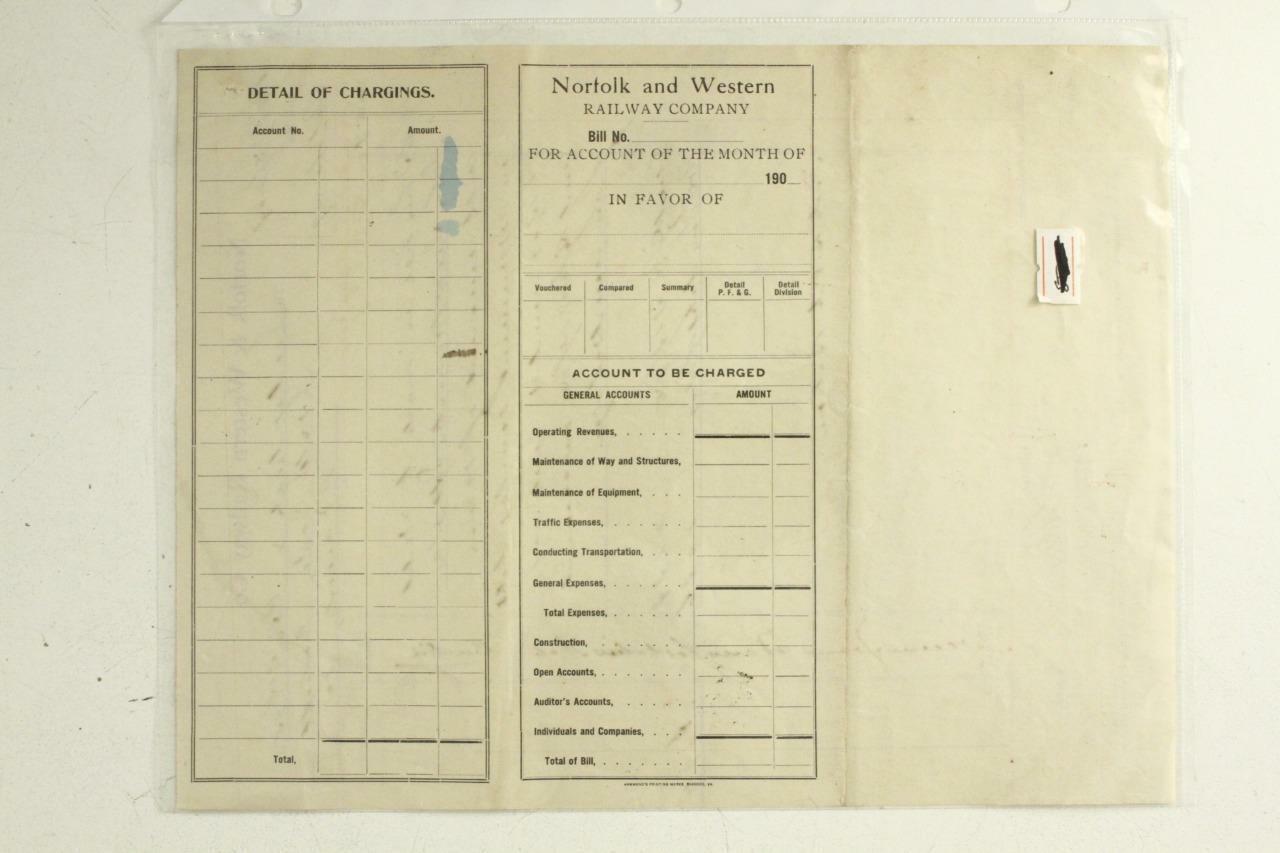 DETAIL OF CHARGINGS.
Account No. Amount.
Total,
Norfolk and Western
RAILWAY COMPANY
Bill No.
FOR ACCOUNT OF THE MONTH OF
190
IN FAVOR OF
Vouchered Compared Summary Detail P. F. & G. Detail Division
ACCOUNT TO BE CHARGED
GENERAL ACCOUNTS AMOUNT
Operating Revenues, . . . . .
Maintenance of Way and Structures,
Maintenance of Equipment, . . .
Traffic Expenses, . . . . . .
Conducting Transportation, . . .
General Expenses, . . . . . .
Total Expenses, . . . . . .
Construction, . . . . . . .
Open Accounts, . . . . . . .
Auditor's Accounts, . . . . .
Individuals and Companies, . . .
Total of Bill, . . . . . . .